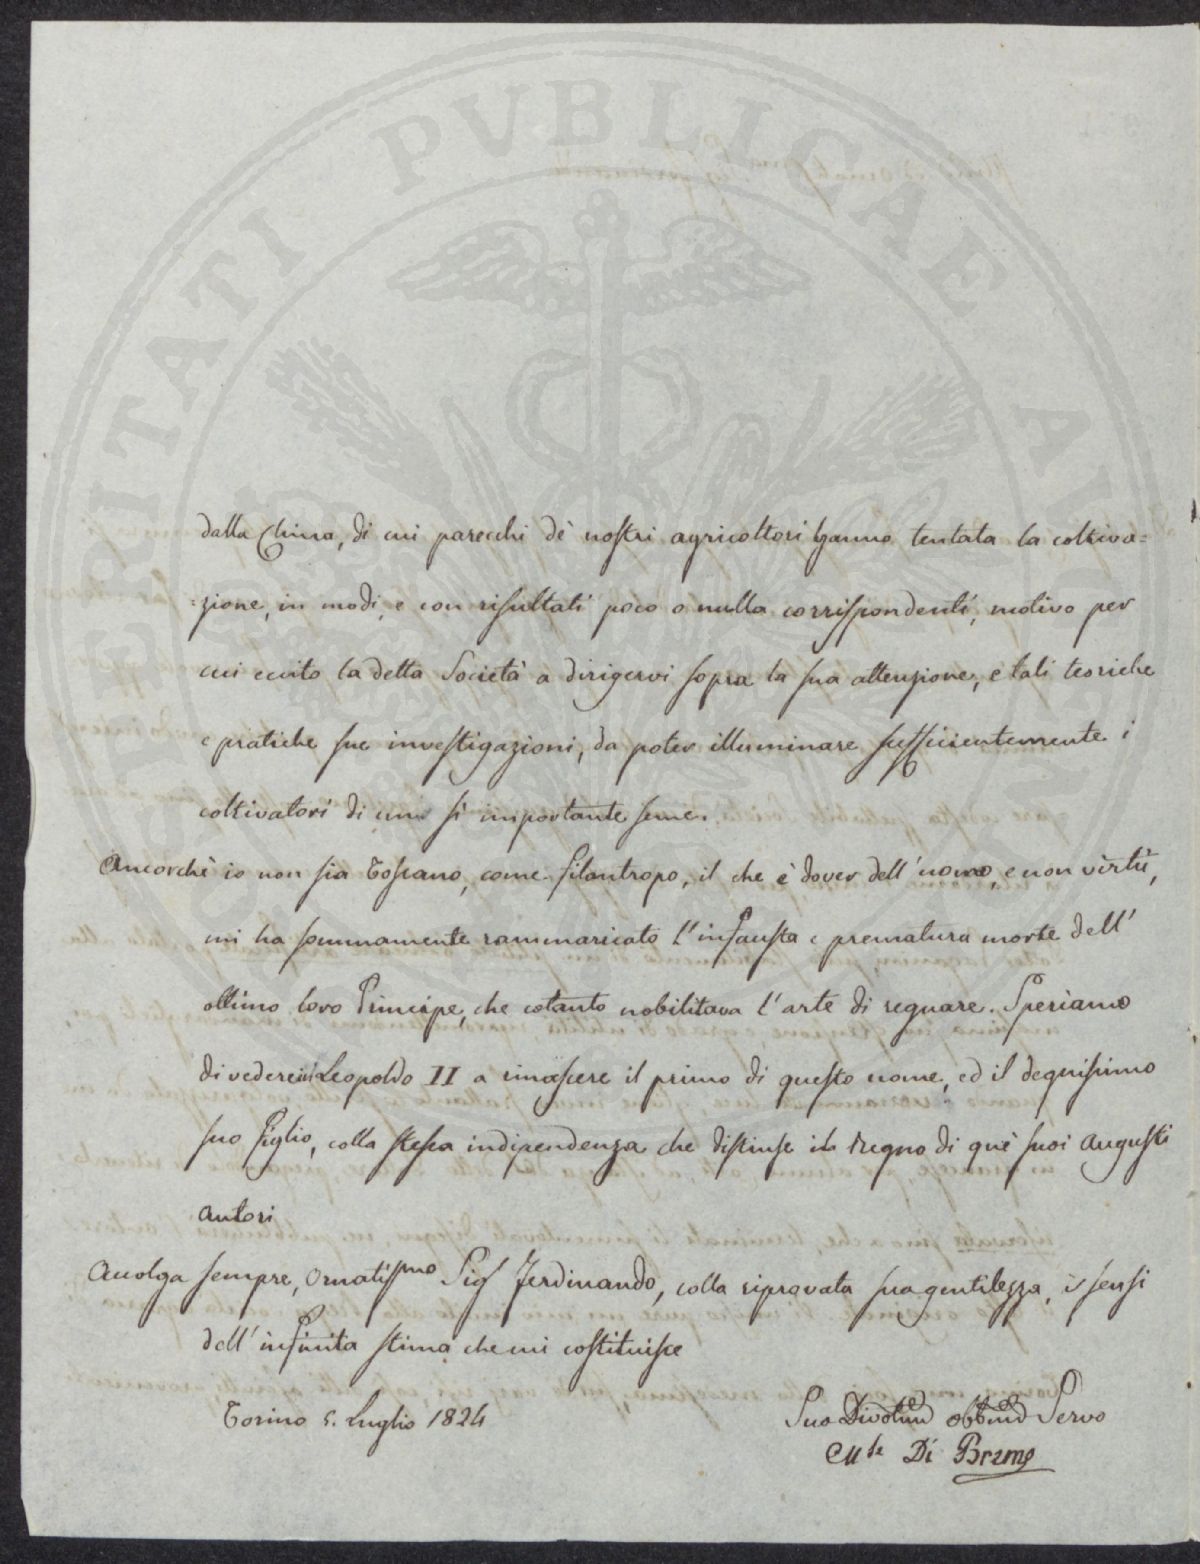 PROSPERITATI PUBLICAE AUGENDAE
dalla China, di cui parecchi de' nostri agricoltori hanno tentata la coltiva=
=zione, in modi, e con risultati poco o nulla corrispondenti, motivo per
cui eccito la detta Società a dirigervi sopra la sua attenzione, e tali teoriche
e pratiche sue investigazioni, da poter illuminare sufficientemente i
coltivatori di un sì importante seme.
Ancorchè io non sia Toscano, come filantropo, il che è dover dell'uomo, e non virtù,
mi ha sommamente rammaricato l'infausta e prematura morte dell'
ottimo loro Principe, che cotanto nobilitava l'arte di regnare. Speriamo
di vedere in Leopoldo II a rinascere il primo di questo nome, ed il degnissimo
suo figlio, colla stessa indipendenza che distinse il Regno di que' suoi Augusti
Autori
Accolga sempre, Ornatissmo Sigr Ferdinando, colla riprovata sua gentilezza, i sensi
dell'infinita stima che mi costituisce
Torino 5. Luglio 1824
Suo Divotmo obbmo Servo
Mse Di Breme